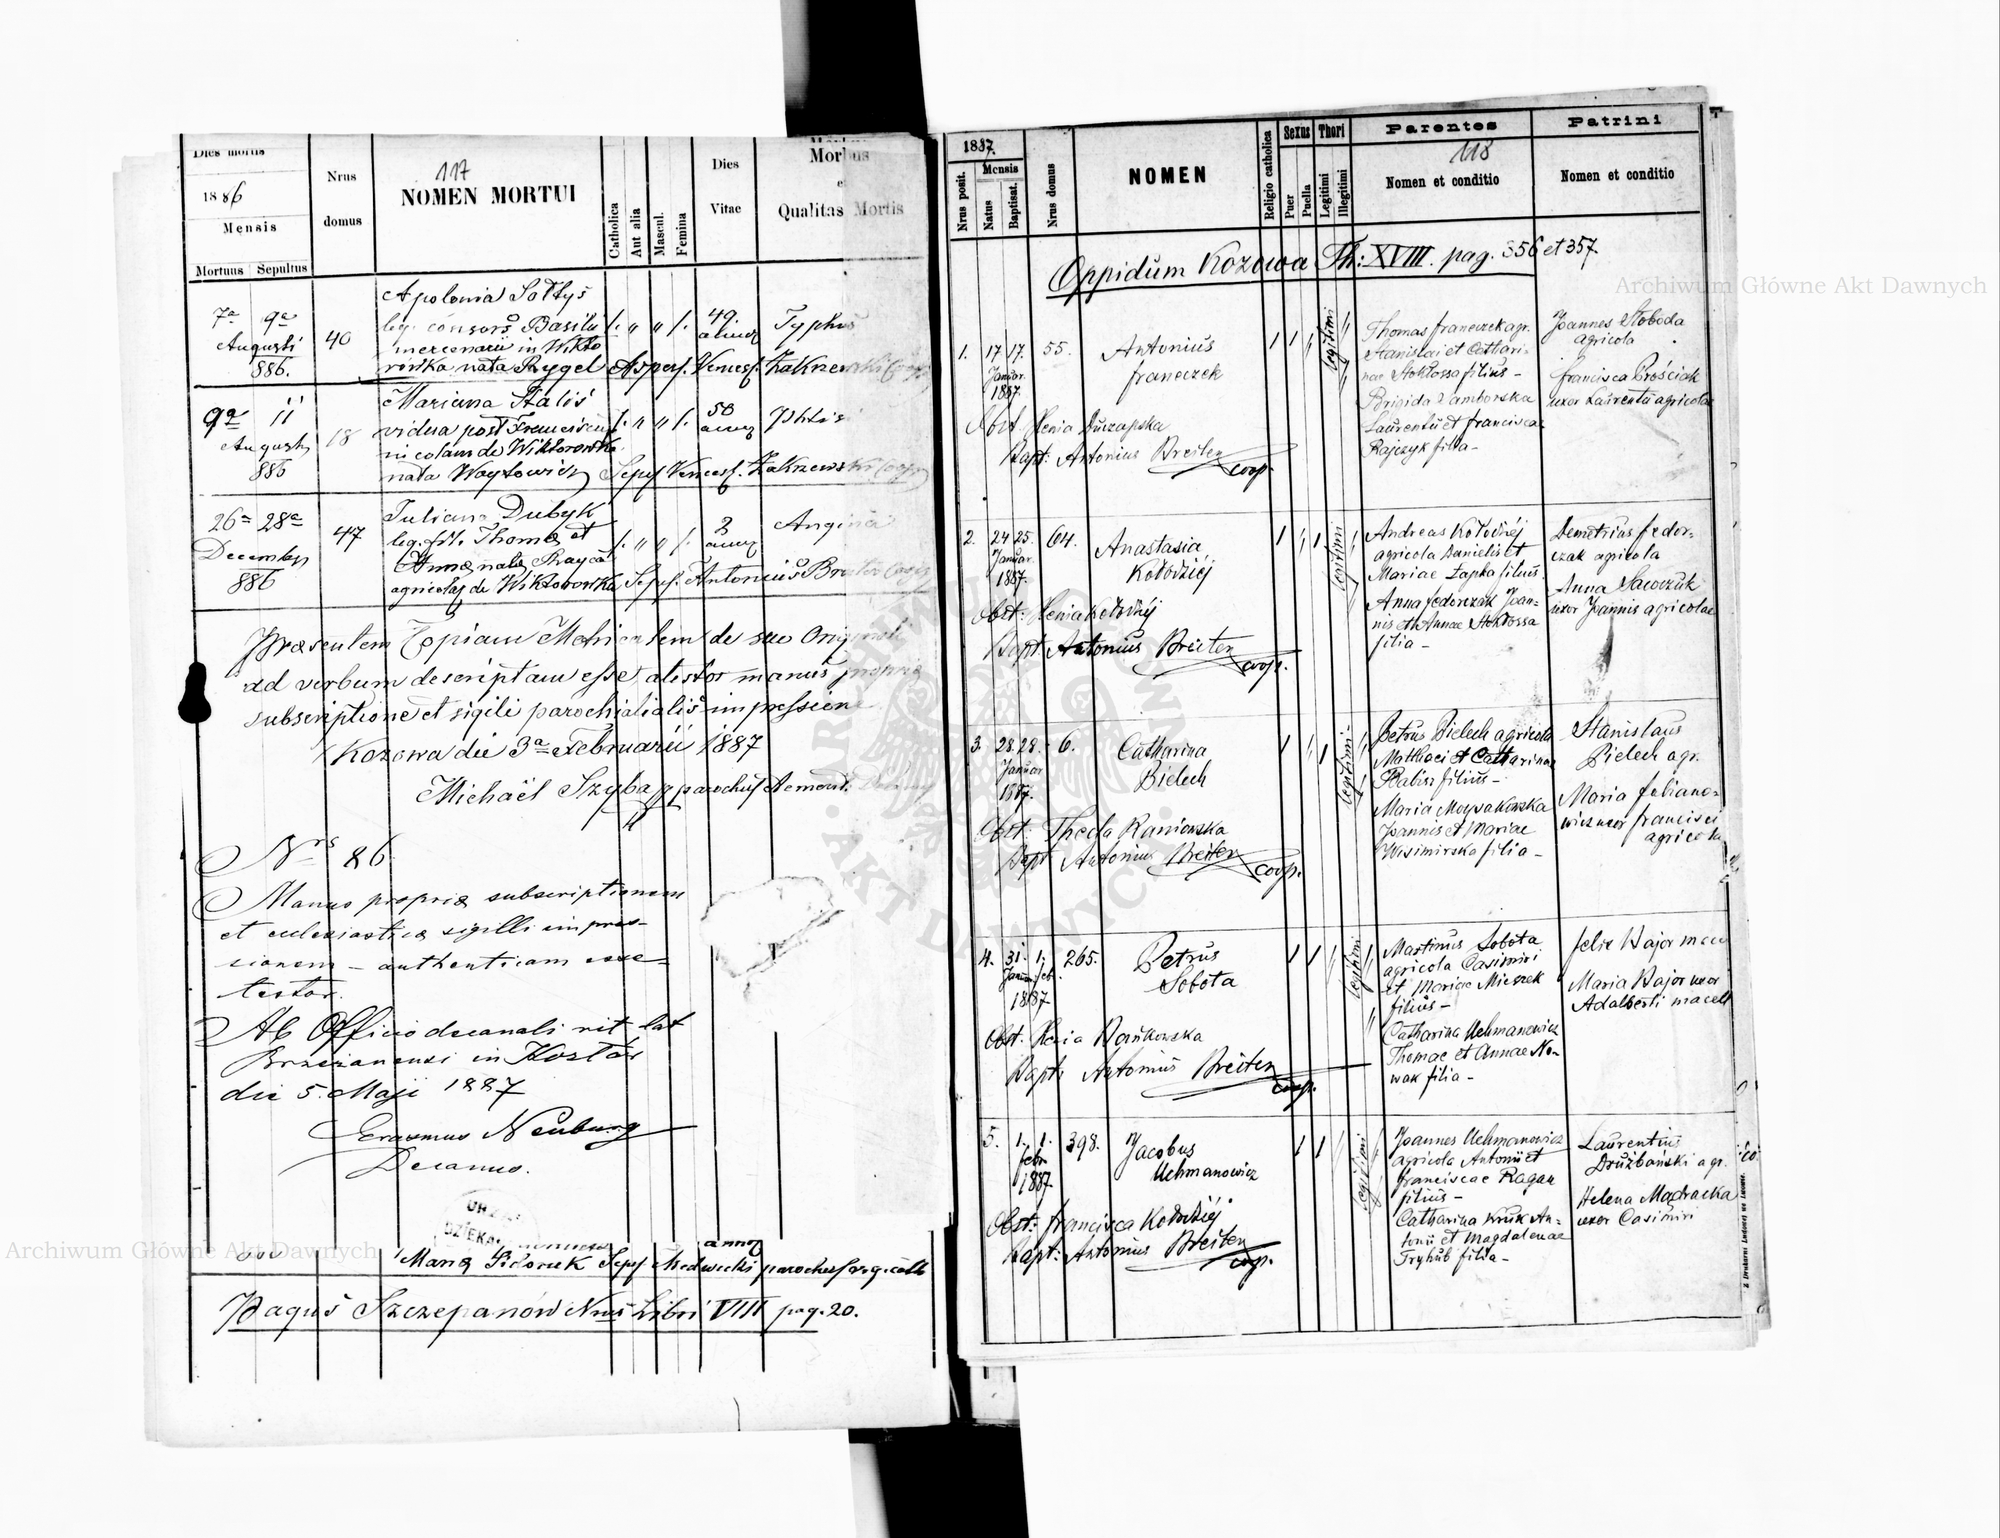 Dies mortis
1886
Mensis
Mortuus Sepultus
Nrus
domus
117
NOMEN MORTUI
Catholica
Aut alia
Mascul.
Femina
Dies
Vitae
Morbus
et
Qualitas Mortis
7a 9a
Augusti
886.
40
Apolonia Sołtys
leg. consors Basilii
mercenarii in Wikto
rówka nata Rygel Aspers. Vencesl. Zakrzewski Coop
49.
annor
Typhus
9a 11
Augusti
886
18
Mariana Stalis
vidua post Franciscum
incolam de Wiktorowka
nata Woytowicz Sepel. Vencesl. Zakrzewski Coop
50
annor
Phtisis
26a 28a
Decembri
886
47
Juliana Dubyk
leg. fil. Thomæ et
Annæ natæ
agricolæ de Wiktorowka Sepel. Antonius Breiter Coop
2
annor
Angina
Præsentem Copiam Metricalem de suo Originali
ad verbum descriptam esse atestor manus propria
subscriptione et sigili parochialis impressione
Kozowa die 3a Februarii 1887
Michaël Szyba parochus
Nrs 86
Manus propriæ subscriptionem
et eclesiasticæ sigilli impres-
sionem – authenticam esse
testor.
Ab Officio decanali rit. lat
Brzezanensi in
die 5. Maji 1887
Erasmus Neuburg
Decanus.
URZ
DZIEKA
annor
Mariæ Sidoruk Sepel parochus
Pagus Szczepanów Nrus Libri VIII pag. 20.
1887.
Nrus posit.
Mensis
Natus
Baptisat.
Nrus domus
NOMEN
Religio catholica
Sexus
Puer
Puella
Thori
Legitimi
Illegitimi
Parentes
118
Nomen et conditio
Patrini
Nomen et conditio
Oppidum Kozowa Th: XVIII. pag. 356 et 357.
1. 17 17. 55.
Januar.
1887.
Antonius
Franczek
legitimi
Thomas Franczek agr.
Stanislai et Cathari-
nae Stokłossa filius –
Brigida Zamborska
Laurentii et Francisca
Rajczyk filia –
Joannes Słoboda
agricola
Francisca Prościak
uxor Laurentii agricola
Obst. Xenia Duczapska
Bapt: Antonius Breiter
coop.
2. 24 25. 64.
Januar.
1887.
Anastasia
Kołodziéj
legitimi
Andreas Kołodziéj
agricola Danielis et
Mariae Łapka filius.
Anna Fedorczak Joan-
nis et Annae Stokłossa
filia –
Demetrius Fedor-
czak agricola
Anna Sawczuk
uxor Joannis agricolae
Obst: Xenia Kołodziéj
Bapt: Antonius Breiter
coop.
3. 28. 28. 6.
Januar
1887.
Catharina
Bielech
legitimi –
Petrus Bielech agricola
Matthaei et Catharinae
Babisz filius –
Maria Moysakowska
Joannis et Mariae
Wisimirska filia –
Stanislaus
Bielech agr.
Maria Feliano-
wicz uxor Francisci
agricola
Obst. Thecla Raniowska
Bapt Antonius Breiter
coop.
4. 31. 1. 265.
Januar feb.
1887
Petrus
Sobota
legitimi
Martinus Sobota
agricola Casimiri
et Mariae Mieszek
filius –
Catharina Uchmanowicz
Thomae et Annae No-
wak filia –
Felix Major
Maria Major uxor
Adalberti
Obst. Xenia Bańkowska
Bapt: Antonius Breiter
coop.
5. 1. 1. 398.
febr
1887
Jacobus
Uchmanowicz
legitimi
Joannes Uchmanowicz
agricola Antonii et
Franciscae Ragan
filius –
Catharina Kruk An-
tonii et Magdalenae
Tryhub filia –
Laurentius
Drużbański agr.
Helena Mądracka
uxor Casimiri
Obst: Francisca Kołodziéj
Bapt: Antonius Breiter
coop.
Z Drukarni Ludowej we Lwowie.
Archiwum Główne Akt Dawnych
Archiwum Główne Akt Dawnych
ARCHIWUM GŁÓWNE
AKT DAWNYCH